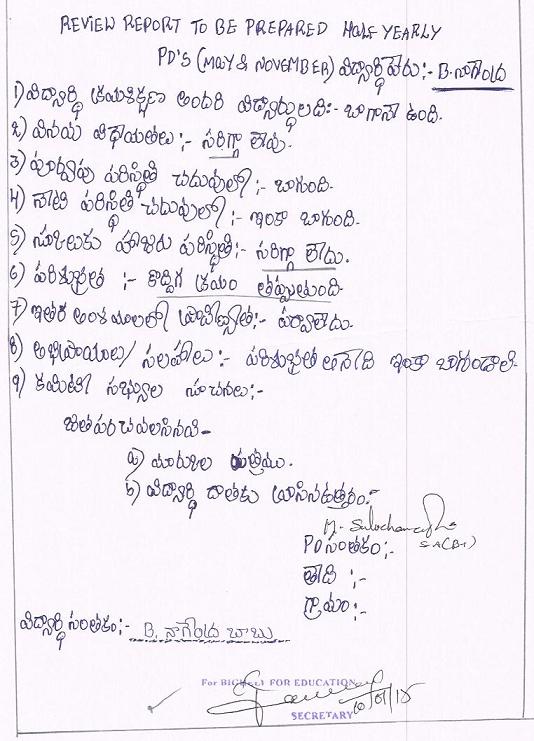 REVIEW REPORT TO BE PREPARED HALF YEARLY
PD'S (MAY & NOVEMBER) విద్యార్థి పేరు:- B. నాగేంద్ర
1) విద్యార్థి క్రమశిక్షణ అందరి విద్యార్థులది:- బాగానే ఉంది.
2) వినయ విధేయతలు:- సరిగ్గా లేవు.
3) పూర్వపు పరిస్థితి చదువులో:- బాగుంది.
4) నేటి పరిస్థితి చదువులో:- ఇంకా బాగుంది.
5) స్కూలుకు హాజరు పరిస్థితి:- సరిగ్గా లేదు.
6) పరిశుభ్రత :- కొద్దిగ క్రమం తప్పుతుంది.
7) ఇతర అంశములలో :- పరవాలేదు.
8) అభిప్రాయాలు/ సలహాలు:- పరిశుభ్రత అనేది ఇంకా బాగుండాలి.
9) కమిటీ సభ్యుల సూచనలు:-
జతపరచవలసినవి-
a) మార్కుల పత్రము.
b) విద్యార్థి దాతకు వ్రాసిన ఉత్తరం:-
M. Sulochana
SA(B.S)
PD సంతకం:-
తేది :-
గ్రామం:-
విద్యార్థి సంతకం:- B. నాగేంద్ర బాబు
FOR EDUCATION
10/01/15
SECRETARY